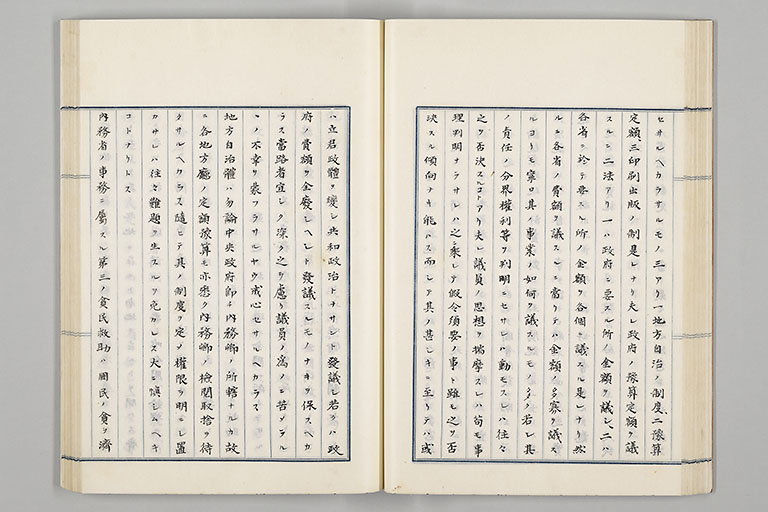 セサルヘカラサルモノ三アリ一地方自治ノ制度二豫算
定額三印刷出版ノ制是レナリ夫レ政府ノ豫算定額ヲ議
スルニ二法アリ一ハ政府ニ要スル所ノ金額ヲ議シ二ハ
各省ニ於テ要スル所ノ金額ヲ各個ニ議スル是レナリ然
ルニ各省ノ費額ヲ議スルニ當リテハ金額ノ多寡ヲ議ス
ルコリモ寧ロ其ノ事業ノ如何ヲ議スルモノ多ク若シ其
ノ責任ノ分界權利等ヲ判明ニセサレハ動モスレハ往々
之ヲ否決スルコトアリ夫レ議員ノ思想ヲ揣摩スレハ苟モ事
理判明ナラサレハ之ニ乘シテ假令須要ノ事ト雖モ之ヲ否
決スル傾向ナキ能ハス而シテ其ノ甚シキニ至リテハ或
ハ立君政體ヲ變シ共和政治トナサント發議シ若クハ政
府ノ費額ヲ全廢シヘシト發議スルモノナキヲ保スヘカ
ラス當路者宜シク深ク之ヲ慮リ議員ノ爲ノニ苦メラル
ヽノ不幸ヲ蒙フラサルヤウ戒心セサルヘカラス
地方自治體ハ勿論中央政府即チ内務卿ノ所轄ナルカ故
ニ各地方廳ノ定額豫算モ亦悉ク内務卿ノ檢閲取捨ヲ待
タサルヘカラス隨ヒテ其ノ制度ヲ定メ權限ヲ明ニシ置
カサレハ往々難題ヲ生スルヲ免カレス大ニ愼シムヘキ
コトナリトス
内務省ノ事務ニ屬スル第三ノ貧民救助ハ國民ノ貧ヲ濟